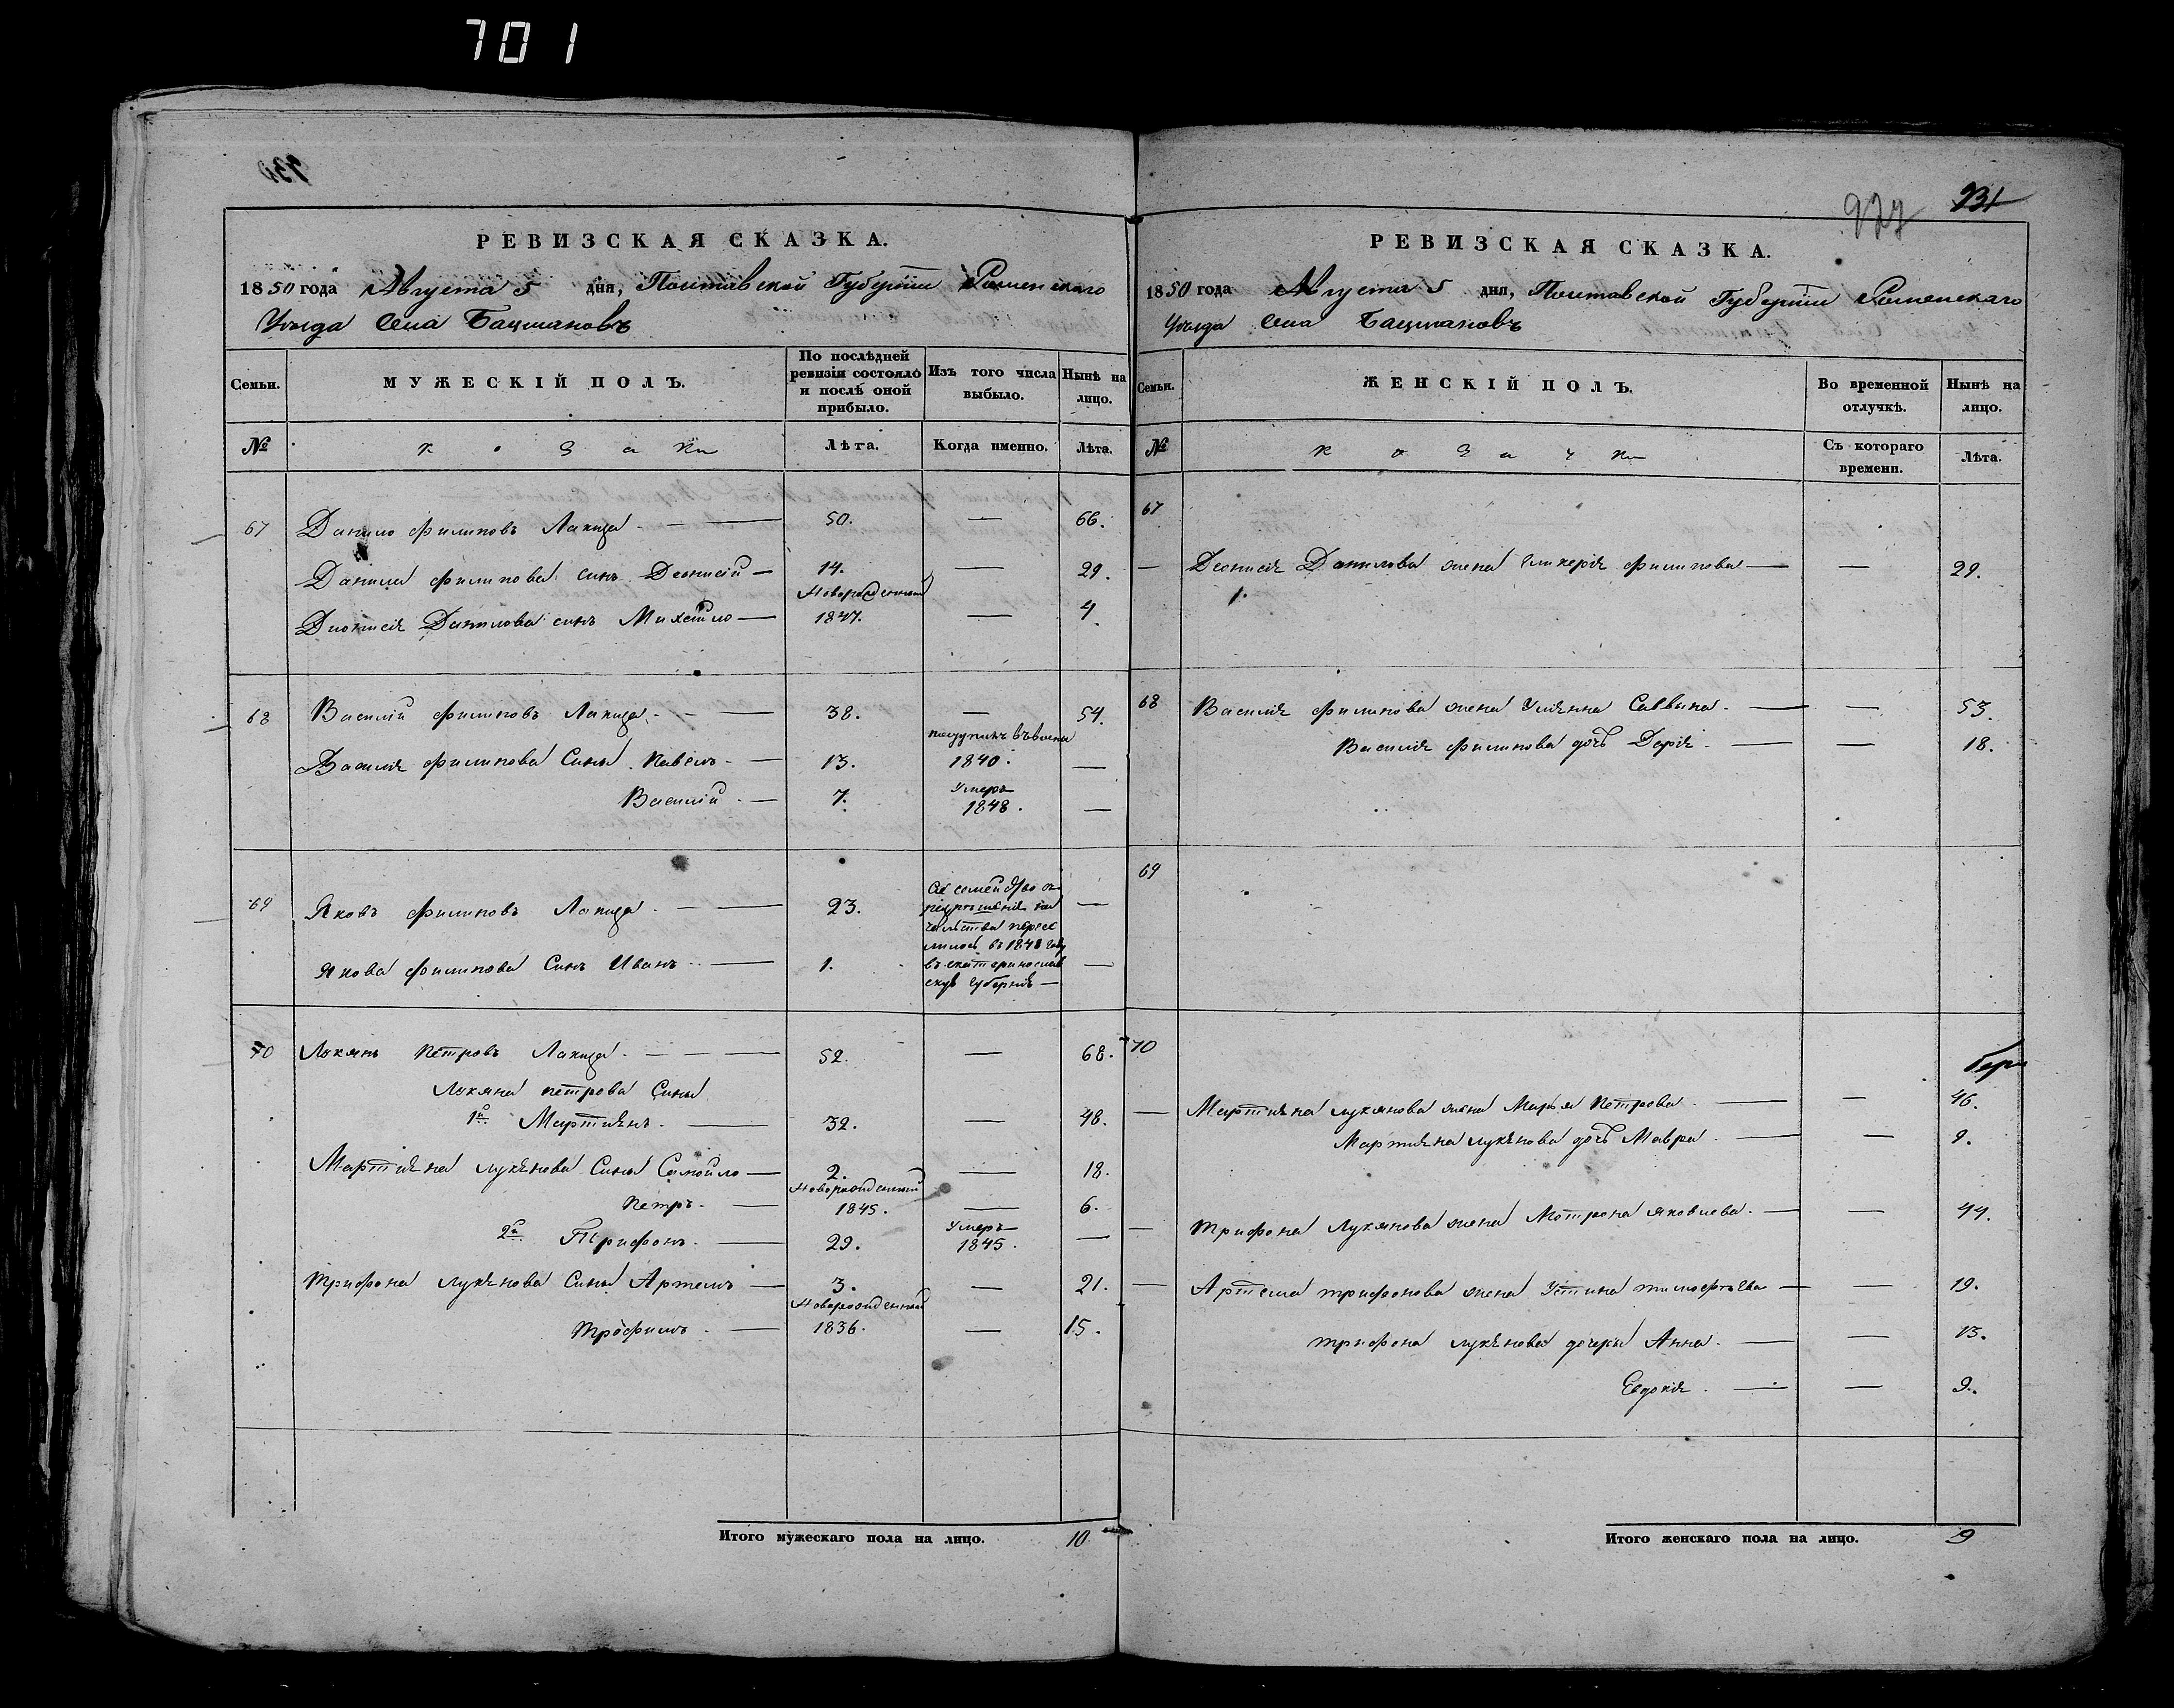 701
РЕВИЗСКАЯ СКАЗКА.
1850 года Августа 5 дня, Полтавской Губерніи Роменскаго
Уѣзда Села Бацмановъ
Семьи.
МУЖЕСКІЙ ПОЛЪ.
По послѣдней ревизіи состояло и послѣ оной прибыло.
Изъ того числа выбыло.
Нынѣ на лицо.
№
козаки
Лѣта.
Когда именно.
Лѣта.
67 Данило Филиповъ Лакиза. — 50. — 66.
Данила Филипова синъ Деонисій — 14. — 29.
Новорожденный
Дионисія Данилова синъ Михайло — 1847. — 4
68 Василій Филиповъ Лакиза. — 38. — 54.
Василія Филипова Сины Павелъ — 13. 1840. —
Василій — 7. Умеръ 1848. —
69 Яковъ Филиповъ Лакиза. — 23. —
Якова Филипова Синъ Иванъ — 1. —
Съ семейство
переселилось въ 1848 году
въ екатеринослав
скую губернію —
70 Лукянъ Петровъ Лакиза. — 52. — 68.
Лукяна Петрова Сины
1й Мартиянъ. — 32. — 48.
Мартияна Лукянова Сины Самойло — 2. — 18.
Новорожденный
Петръ. — 1845. — 6.
2й Трифонъ. — 29. Умеръ 1845. —
Трифона Лукянова Сины Артемъ — 3. — 21.
Новорожденный
Трофимъ. — 1836. — 15.
Итого мужескаго пола на лицо. 10
931
РЕВИЗСКАЯ СКАЗКА.
1850 года Августа 5 дня, Полтавской Губерніи Роменскаго
Уѣзда Села Бацмановъ
Семьи.
ЖЕНСКІЙ ПОЛЪ.
Во временной отлучкѣ.
Нынѣ на лицо.
№
козачки
Съ котораго времени.
Лѣта.
67
— Деонисія Данилова жена Гликерія Филипова — — 29.
68 Василія Филипова жена Уліянна Саввина. — — 53.
Василія Филипова дочь Дарія. — — 18.
69
70
— Мартияна Лукянова жена Марья Петрова. — — 46.
Мартияна Лукянова дочь Мавра. — — 9.
— Трифона Лукянова жена Мотрона Яковлева. — — 44.
— Артема Трифонова жена Устина Тимофѣева — — 19.
Трифона Лукянова дочери Анна. — — 13.
Евдокія. — — 9.
Итого женскаго пола на лицо. 9